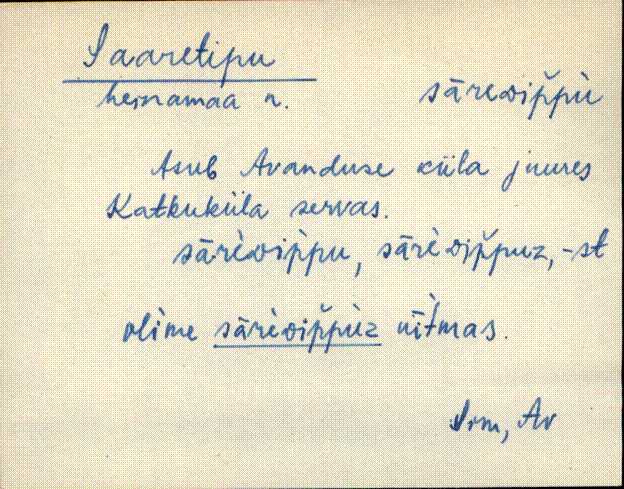 Saaretipu
heinamaa n. sāreᴅip̆pù
Asub Avanduse küla juures
Katkuküla servas.
sārèᴅip̀pu, sārèᴅip̆puz, -st
olìme sārèᴅip̆pùz nīt̀mas.
Sim, Av